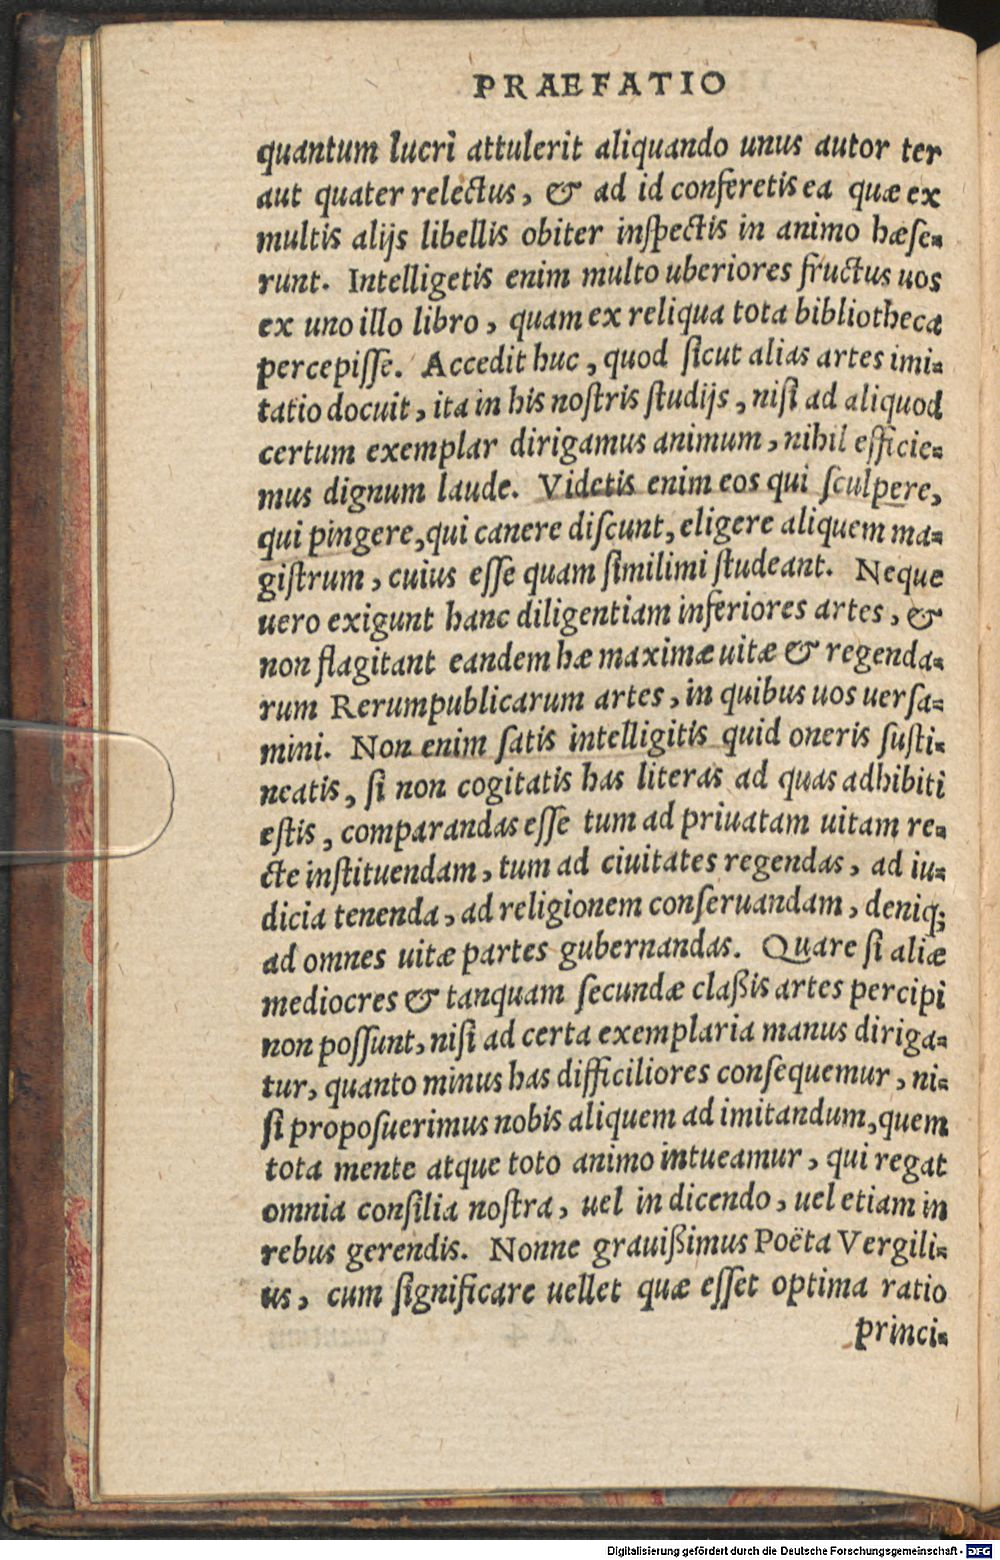 PRAEFATIO
quantum lucri attulerit aliquando unus autor ter
aut quater relectus, & ad id conferetis ea quæ ex
multis alijs libellis obiter inſpectis in animo hæſe-
runt. Intelligetis enim multo uberiores fructus uos
ex uno illo libro, quam ex reliqua tota bibliotheca
percepiſſe. Accedit huc, quod ſicut alias artes imi-
tatio docuit, ita in his noſtris ſtudijs, niſi ad aliquod
certum exemplar dirigamus animum, nihil efficie-
mus dignum laude. Videtis enim eos qui ſculpere,
qui pingere, qui canere diſcunt, eligere aliquem ma-
giſtrum, cuius eſſe quam ſimilimi ſtudeant. Neque
uero exigunt hanc diligentiam inferiores artes, &
non flagitant eandem hæ maximæ uitæ & regenda-
rum Rerumpublicarum artes, in quibus uos uerſa-
mini. Non enim ſatis intelligitis quid oneris ſuſti-
neatis, ſi non cogitatis has literas ad quas adhibiti
eſtis, comparandas eſſe tum ad priuatam uitam re-
cte inſtituendam, tum ad ciuitates regendas, ad iu-
dicia tenenda, ad religionem conſeruandam, deniq;
ad omnes uitæ partes gubernandas. Quare ſi aliæ
mediocres & tanquam ſecundæ claßis artes percipi
non poſſunt, niſi ad certa exemplaria manus diriga-
tur, quanto minus has difficiliores conſequemur, ni-
ſi propoſuerimus nobis aliquem ad imitandum, quem
tota mente atque toto animo intueamur, qui regat
omnia conſilia noſtra, uel in dicendo, uel etiam in
rebus gerendis. Nonne grauißimus Poëta Vergili-
us, cum ſignificare uellet quæ eſſet optima ratio
princi-
Digitalisierung gefördert durch die Deutsche Forschungsgemeinschaft - DFG